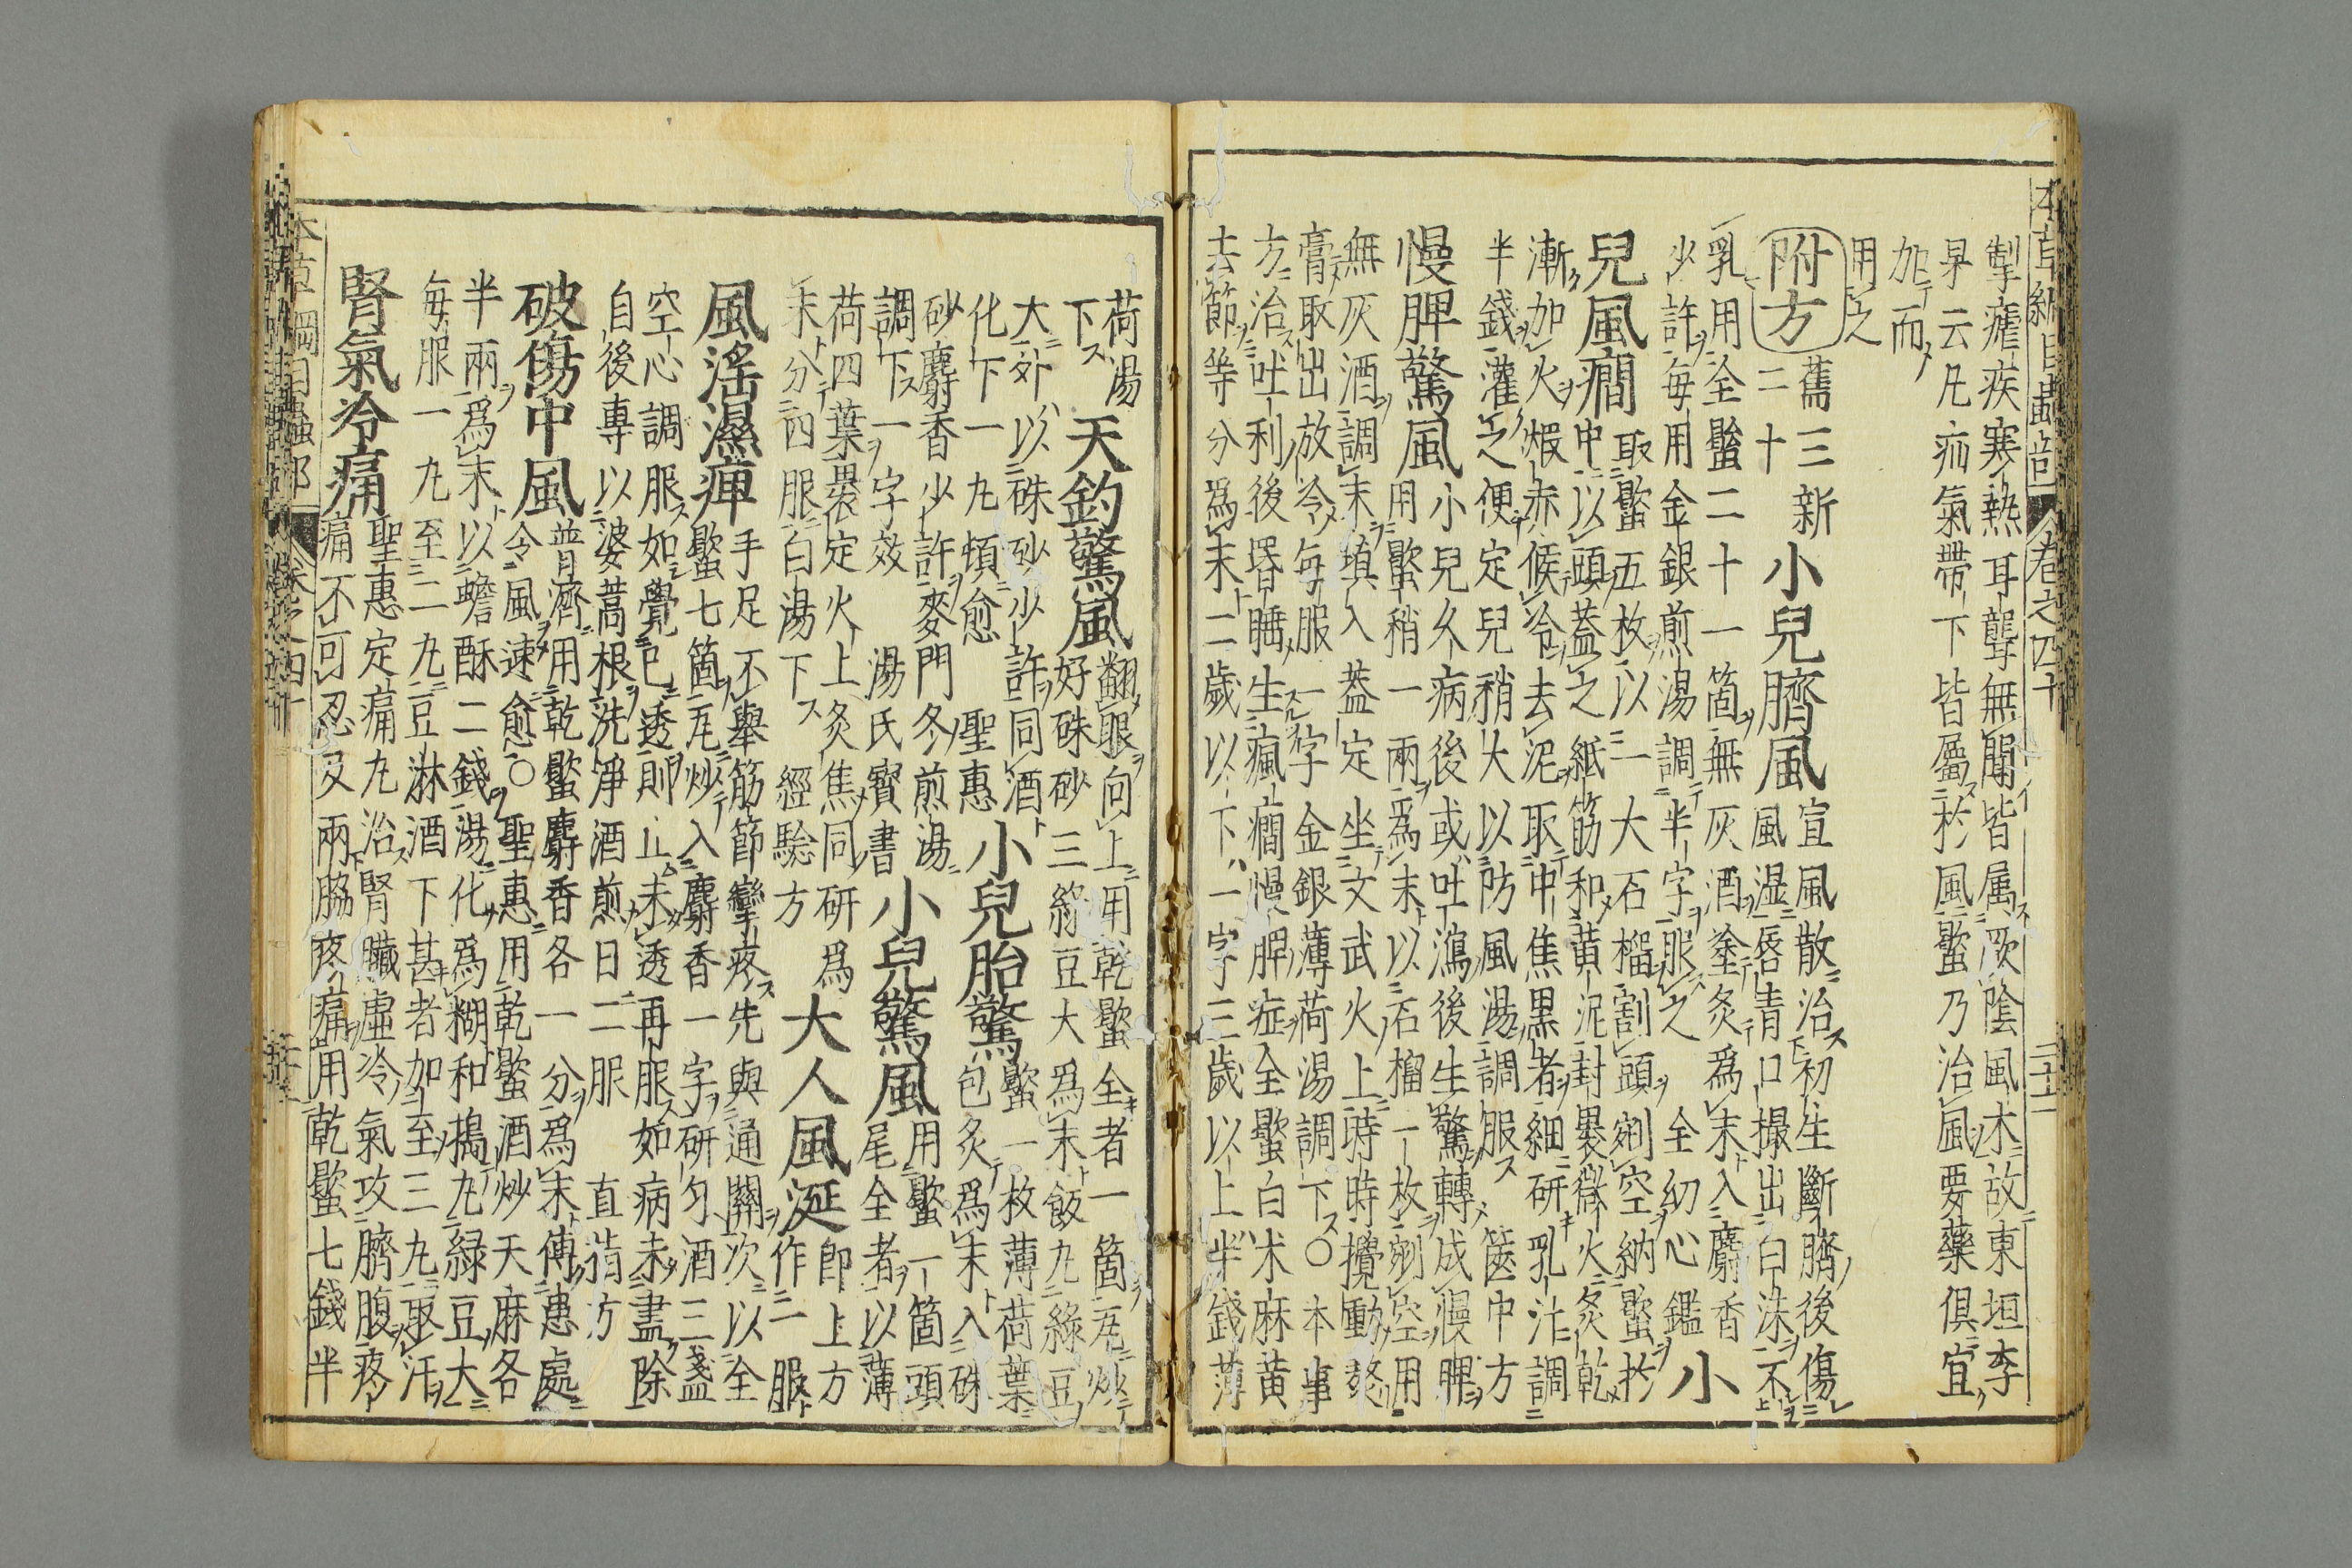 本草綱目蟲部 卷之四十 二十二
掣瘧疾寒熱耳聾無聞皆属厥陰風木故東垣李
杲云凡疝氣帶下皆屬於風蠍乃治風要藥俱宜
加而
用之
附方 舊三新二十 小兒臍風 宣風散治初生斷臍後傷
風湿唇青口撮出白沫不
乳用全蠍二十一箇無灰酒塗炙爲末入麝香
少許每用金銀煎湯調半字服之 全幼心鑑 小
兒風癇 取蠍五枚以一大石榴割頭剜空納蠍於
中以頭蓋之紙筋和黄泥封裹微火炙乾
漸加火煆赤候冷去泥取中焦黒者細研乳汁調
半錢灌之便定兒稍大以防風湯調服 篋中方
慢脾驚風 小兒久病後或吐瀉後生驚轉成慢脾
用蠍稍一兩爲末以石榴一枚剜空用
無灰酒調末填入蓋定坐文武火上時時攪動熬
膏取出放冷每服一字金銀薄荷湯調下○本事
方治吐利後昏睡生瘋癇慢脾症全蠍白朮麻黄
去節等分爲末二歲以下一字三歲以上半錢薄
荷湯
下 天釣驚風 翻眼向上用乾蠍全者一箇瓦炒
好硃砂三綠豆大爲末飯丸綠豆
大外以硃砂少許同酒
化下一丸頓愈 聖惠 小兒胎驚 蠍一枚薄荷葉
包炙爲末入硃
砂麝香少許麥門冬煎湯
調下一字效 湯氏寶書 小兒驚風 用蠍一箇頭
尾全者以薄
荷四葉裹定火上炙焦同研爲
末分四服白湯下 經驗方 大人風涎 即上方
作一服
風淫濕痺 手足不舉筋節攣疼先與通關次以全
蠍七箇瓦炒入麝香一字研匀酒三盞
空心調服如覺已透則止未透再服如病未盡除
自後專以婆蒿根洗淨酒煎日二服 直指方
破傷中風 普濟用乾蠍麝香各一分爲末傅患處
令風速愈○聖惠用乾蠍酒炒天麻各
半兩爲末以蟾酥二錢湯化爲糊和搗丸緑豆大
每服一丸至二丸豆淋酒下甚者加至三丸取汗
腎氣冷痛 聖惠定痛丸治腎臟虛冷氣攻臍腹疼
痛不可忍及兩脇疼痛用乾蠍七錢半
本草綱目蟲部 卷之四十